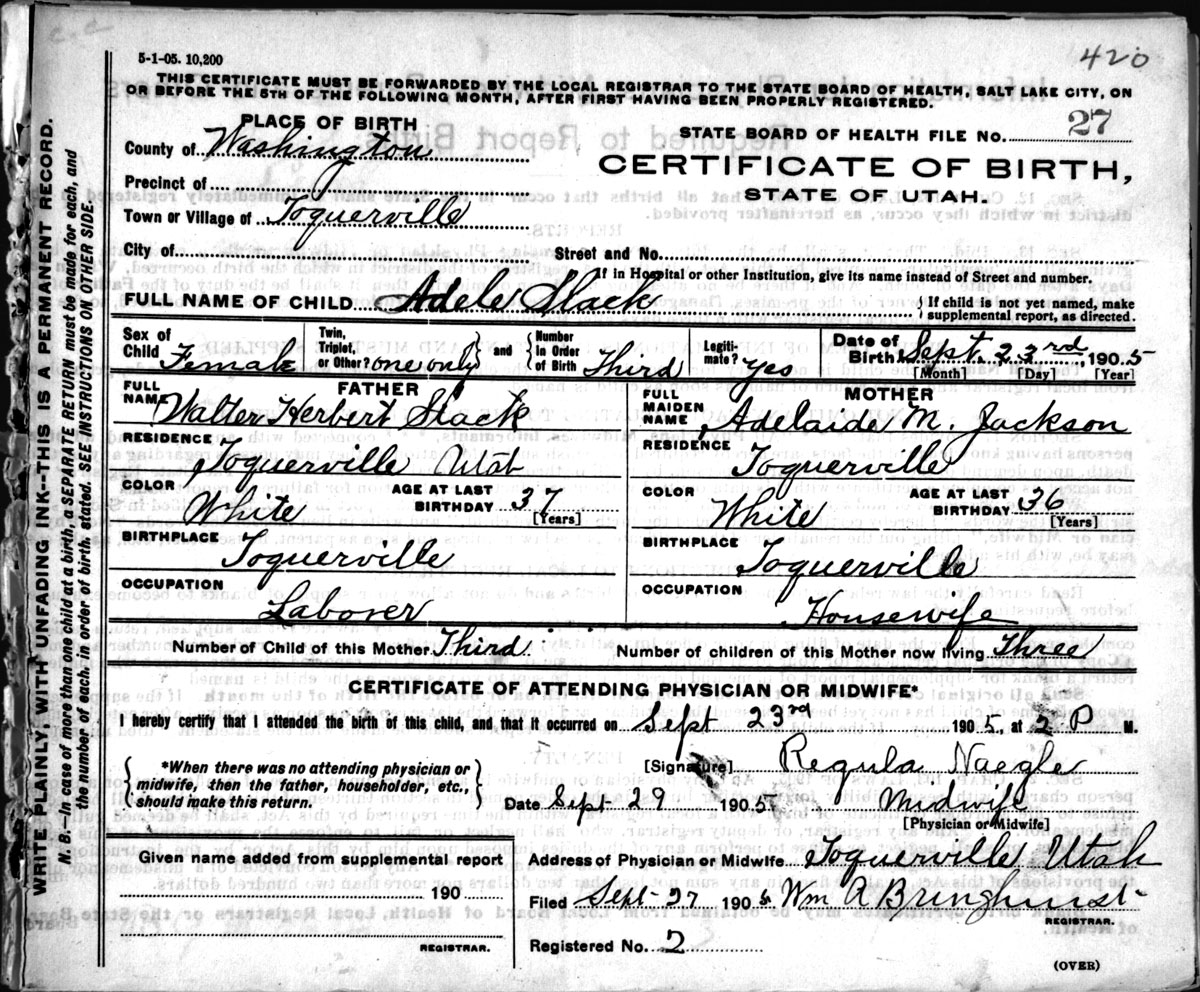 420
5-1-05. 10,200
THIS CERTIFICATE MUST BE FORWARDED BY THE LOCAL REGISTRAR TO THE STATE BOARD OF HEALTH, SALT LAKE CITY, ON
OR BEFORE THE 5TH OF THE FOLLOWING MONTH, AFTER FIRST HAVING BEEN PROPERLY REGISTERED.
PLACE OF BIRTH
STATE BOARD OF HEALTH FILE NO. 27
County of Washington
CERTIFICATE OF BIRTH,
Precinct of
STATE OF UTAH.
Town or Village of Toquerville
City of
Street and No.
If in Hospital or other Institution, give its name instead of Street and number.
FULL NAME OF CHILD Adele Slack
{ If child is not yet named, make
supplemental report, as directed.
Sex of Child Female
Twin, Triplet, or Other? one only } and { Number in Order of Birth Third
Legiti-mate? Yes
Date of Birth Sept. 23rd 1905
[Month] [Day] [Year]
FATHER
FULL NAME Walter Herbert Slack
RESIDENCE Toquerville Utah
COLOR White
AGE AT LAST BIRTHDAY 37
[Years]
BIRTHPLACE Toquerville
OCCUPATION Laborer
MOTHER
FULL MAIDEN NAME Adelaide M. Jackson
RESIDENCE Toquerville
COLOR White
AGE AT LAST BIRTHDAY 36
[Years]
BIRTHPLACE Toquerville
OCCUPATION Housewife
Number of Child of this Mother Third
Number of children of this Mother now living Three
CERTIFICATE OF ATTENDING PHYSICIAN OR MIDWIFE*
I hereby certify that I attended the birth of this child, and that it occurred on Sept 23rd 1905, at 2 P M.
{ *When there was no attending physician or
midwife, then the father, householder, etc.,
should make this return. }
[Signature] Regula Naegle
Date Sept 29 1905
Midwife
[Physician or Midwife]
Given name added from supplemental report
190
REGISTRAR.
Address of Physician or Midwife Toquerville Utah
Filed Sept 27 1905 Wm A Bringhurst
REGISTRAR.
Registered No. 2
(OVER)
WRITE PLAINLY, WITH UNFADING INK---THIS IS A PERMANENT RECORD.
N. B.--In case of more than one child at a birth, a SEPARATE RETURN must be made for each, and
the number of each, in order of birth, stated. SEE INSTRUCTIONS ON OTHER SIDE.